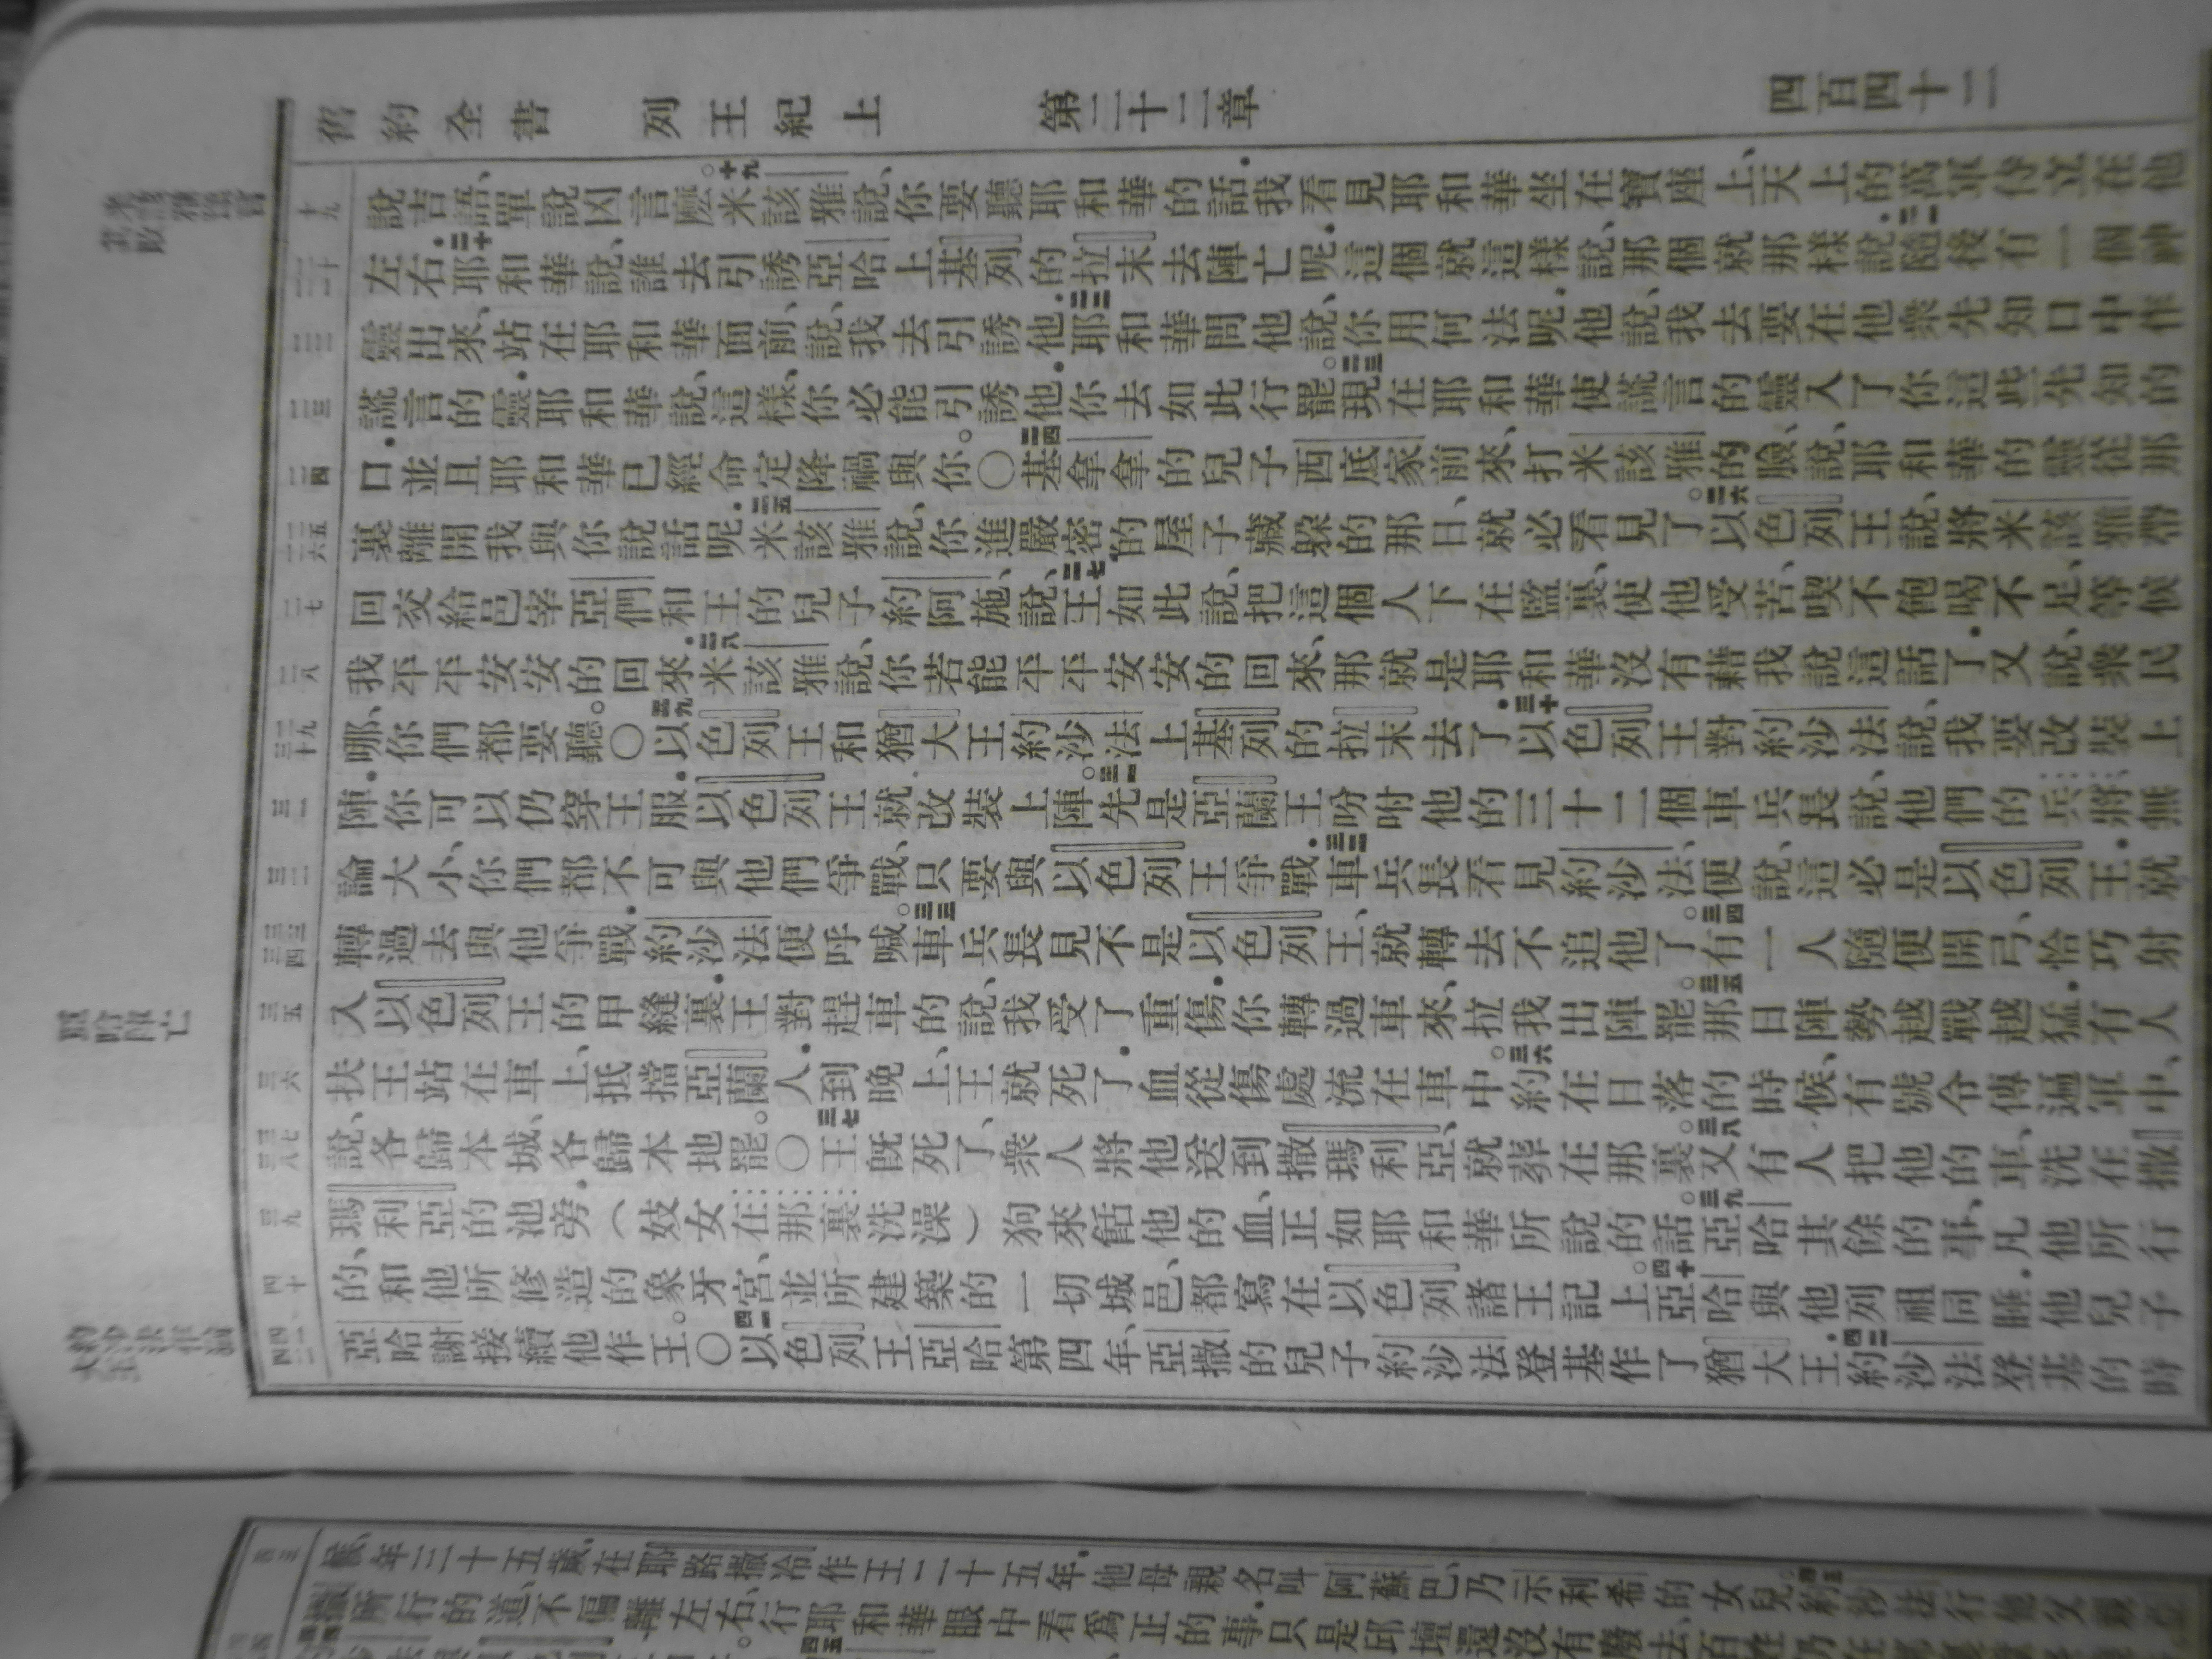 舊約全書 列王紀上 第二十二章 四百四十二
說吉語、單說凶言麼。十九米該雅說、你要聽耶和華的話.我看見耶和華坐在寶座上、天上的萬軍侍立在他
左右.二十耶和華說、誰去引誘亞哈上基列的拉末去陣亡呢.這個就這樣說、那個就那樣說.二一隨後有一個神
靈出來、站在耶和華面前、說、我去引誘他.二二耶和華問他說、你用何法呢.他說、我去要在他衆先知口中作
謊言的靈.耶和華說、這樣、你必能引誘他.你去如此行罷。二三現在耶和華使謊言的靈入了你這些先知的
口.並且耶和華已經命定降禍與你。〇二四基拿拿的兒子西底家前來、打米該雅的臉、說、耶和華的靈從那
裏離開我與你說話呢.二五米該雅說、你進嚴密的屋子藏躱的那日、就必看見了。二六以色列王說、將米該雅帶
回交給邑宰亞們和王的兒子約阿施、說、二七王如此說、把這個人下在監裏、使他受苦、喫不飽喝不足、等候
我平平安安的回來.二八米該雅說、你若能平平安安的回來、那就是耶和華沒有藉我說這話了.又說、衆民
哪、你們都要聽。〇二九以色列王和猶大王約沙法上基列的拉末去了.三十以色列王對約沙法說、我要改裝上
陣.你可以仍穿王服.以色列王就改裝上陣。三一先是亞蘭王吩咐他的三十二個車兵長說、他們的兵將、無
論大小、你們都不可與他們爭戰、只要與以色列王爭戰.三二車兵長看見約沙法、便說、這必是以色列王.就
轉過去與他爭戰.約沙法便呼喊。三三車兵長見不是以色列王、就轉去不追他了。三四有一人隨便開弓、恰巧射
入以色列王的甲縫裏.王對趕車的說、我受了重傷.你轉過車來、拉我出陣罷。三五那日陣勢越戰越猛.有人
扶王站在車上、抵擋亞蘭人.到晚上、王就死了.血從傷處流在車中。三六約在日落的時候、有號令傳遍軍中、
說、各歸本城、各歸本地罷。〇三七王旣死了、衆人將他送到撒瑪利亞、就葬在那裏。三八又有人把他的車、洗在撒
瑪利亞的池旁.（妓女在那裏洗澡）狗來餂他的血、正如耶和華所說的話。三九亞哈其餘的事、凡他所行
的、和他所修造的象牙宮、並所建築的一切城邑、都寫在以色列諸王記上。四十亞哈與他列祖同睡.他兒子
亞哈謝接續他作王。〇四一以色列王亞哈第四年、亞撒的兒子約沙法登基作了猶大王.四二約沙法登基的時
亞哈陣亡
年三十五歲.在耶路撒冷作王二十五年.他母親名叫阿蘇巴、乃示利希的女兒.
所行的道、不偏離左右、行耶和華眼中看爲正的事.只是邱壇還沒有廢去、百姓仍